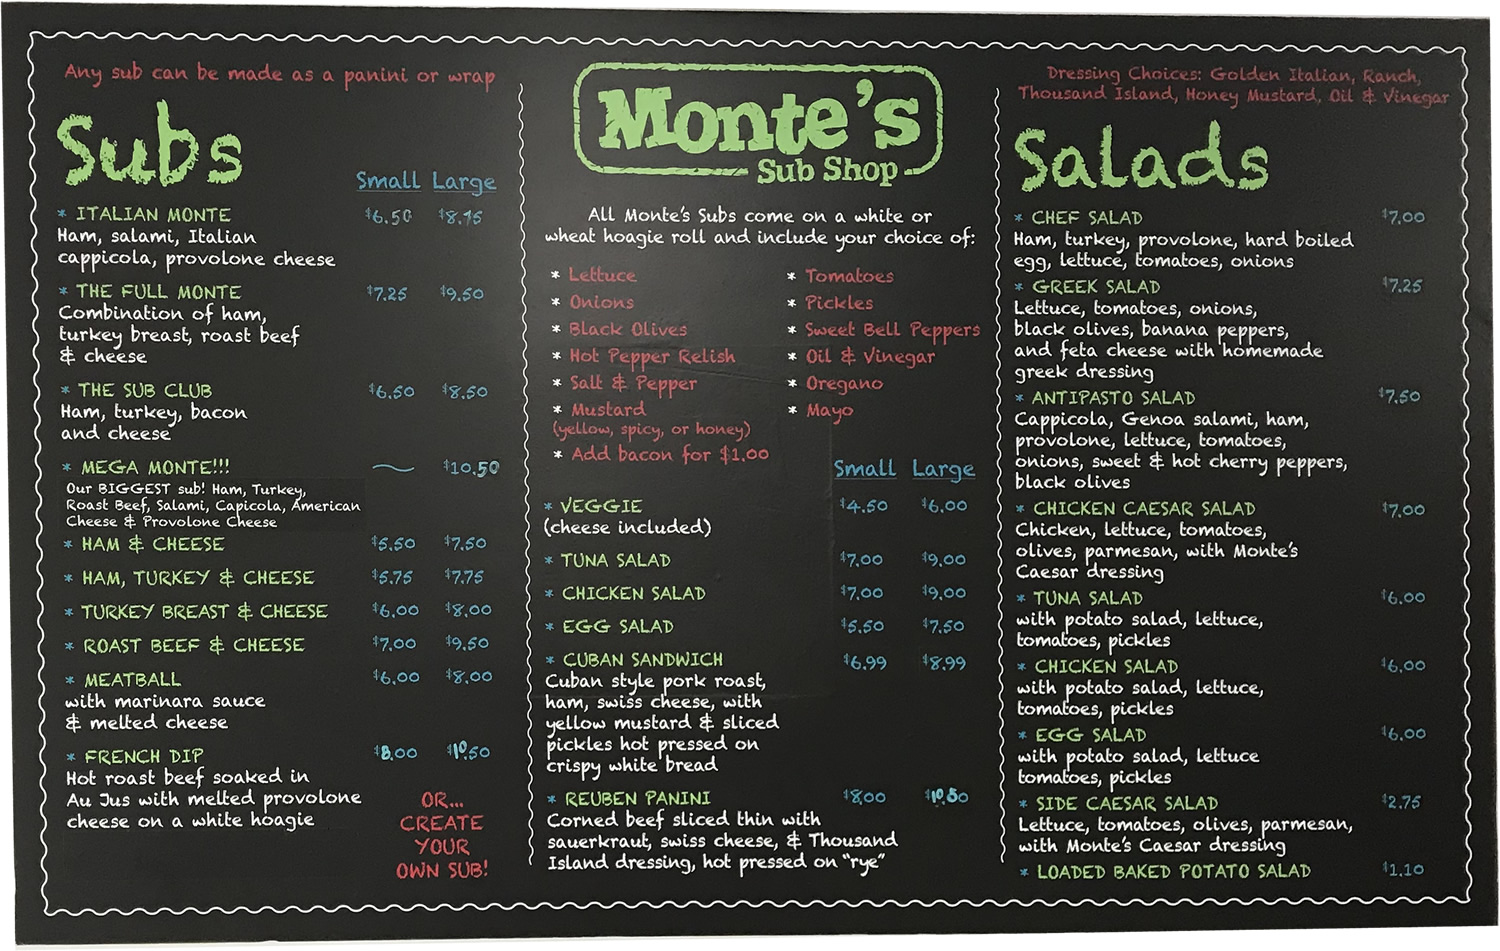 Any sub can be made as a panini or wrap
Subs
Small Large
* ITALIAN MONTE $6.50 $8.95
Ham, salami, Italian
cappicola, provolone cheese
* THE FULL MONTE $7.25 $9.50
Combination of ham,
turkey breast, roast beef
& cheese
* THE SUB CLUB $6.50 $8.50
Ham, turkey, bacon
and cheese
* MEGA MONTE!!! $10.50
Our BIGGEST sub! Ham, Turkey,
Roast Beef, Salami, Capicola, American
Cheese & Provolone Cheese
* HAM & CHEESE $5.50 $7.50
* HAM, TURKEY & CHEESE $5.75 $7.75
* TURKEY BREAST & CHEESE $6.00 $8.00
* ROAST BEEF & CHEESE $7.00 $9.50
* MEATBALL $6.00 $8.00
with marinara sauce
& melted cheese
* FRENCH DIP $8.00 $10.50
Hot roast beef soaked in
Au Jus with melted provolone
cheese on a white hoagie
OR...
CREATE
YOUR
OWN SUB!
Monte's
Sub Shop
All Monte's Subs come on a white or
wheat hoagie roll and include your choice of:
* Lettuce
* Onions
* Black Olives
* Hot Pepper Relish
* Salt & Pepper
* Mustard
(yellow, spicy, or honey)
* Add bacon for $1.00
* Tomatoes
* Pickles
* Sweet Bell Peppers
* Oil & Vinegar
* Oregano
* Mayo
Small Large
* VEGGIE $4.50 $6.00
(cheese included)
* TUNA SALAD $7.00 $9.00
* CHICKEN SALAD $7.00 $9.00
* EGG SALAD $5.50 $7.50
* CUBAN SANDWICH $6.99 $8.99
Cuban style pork roast,
ham, swiss cheese, with
yellow mustard & sliced
pickles hot pressed on
crispy white bread
* REUBEN PANINI $8.00 $10.50
Corned beef sliced thin with
sauerkraut, swiss cheese, & Thousand
Island dressing, hot pressed on "rye"
Dressing Choices: Golden Italian, Ranch,
Thousand Island, Honey Mustard, Oil & Vinegar
Salads
* CHEF SALAD $7.00
Ham, turkey, provolone, hard boiled
egg, lettuce, tomatoes, onions
* GREEK SALAD $7.25
Lettuce, tomatoes, onions,
black olives, banana peppers,
and feta cheese with homemade
greek dressing
* ANTIPASTO SALAD $7.50
Cappicola, Genoa salami, ham,
provolone, lettuce, tomatoes,
onions, sweet & hot cherry peppers,
black olives
* CHICKEN CAESAR SALAD $7.00
Chicken, lettuce, tomatoes,
olives, parmesan, with Monte's
Caesar dressing
* TUNA SALAD $6.00
with potato salad, lettuce,
tomatoes, pickles
* CHICKEN SALAD $6.00
with potato salad, lettuce,
tomatoes, pickles
* EGG SALAD $6.00
with potato salad, lettuce
tomatoes, pickles
* SIDE CAESAR SALAD $2.75
Lettuce, tomatoes, olives, parmesan,
with Monte's Caesar dressing
* LOADED BAKED POTATO SALAD $1.10